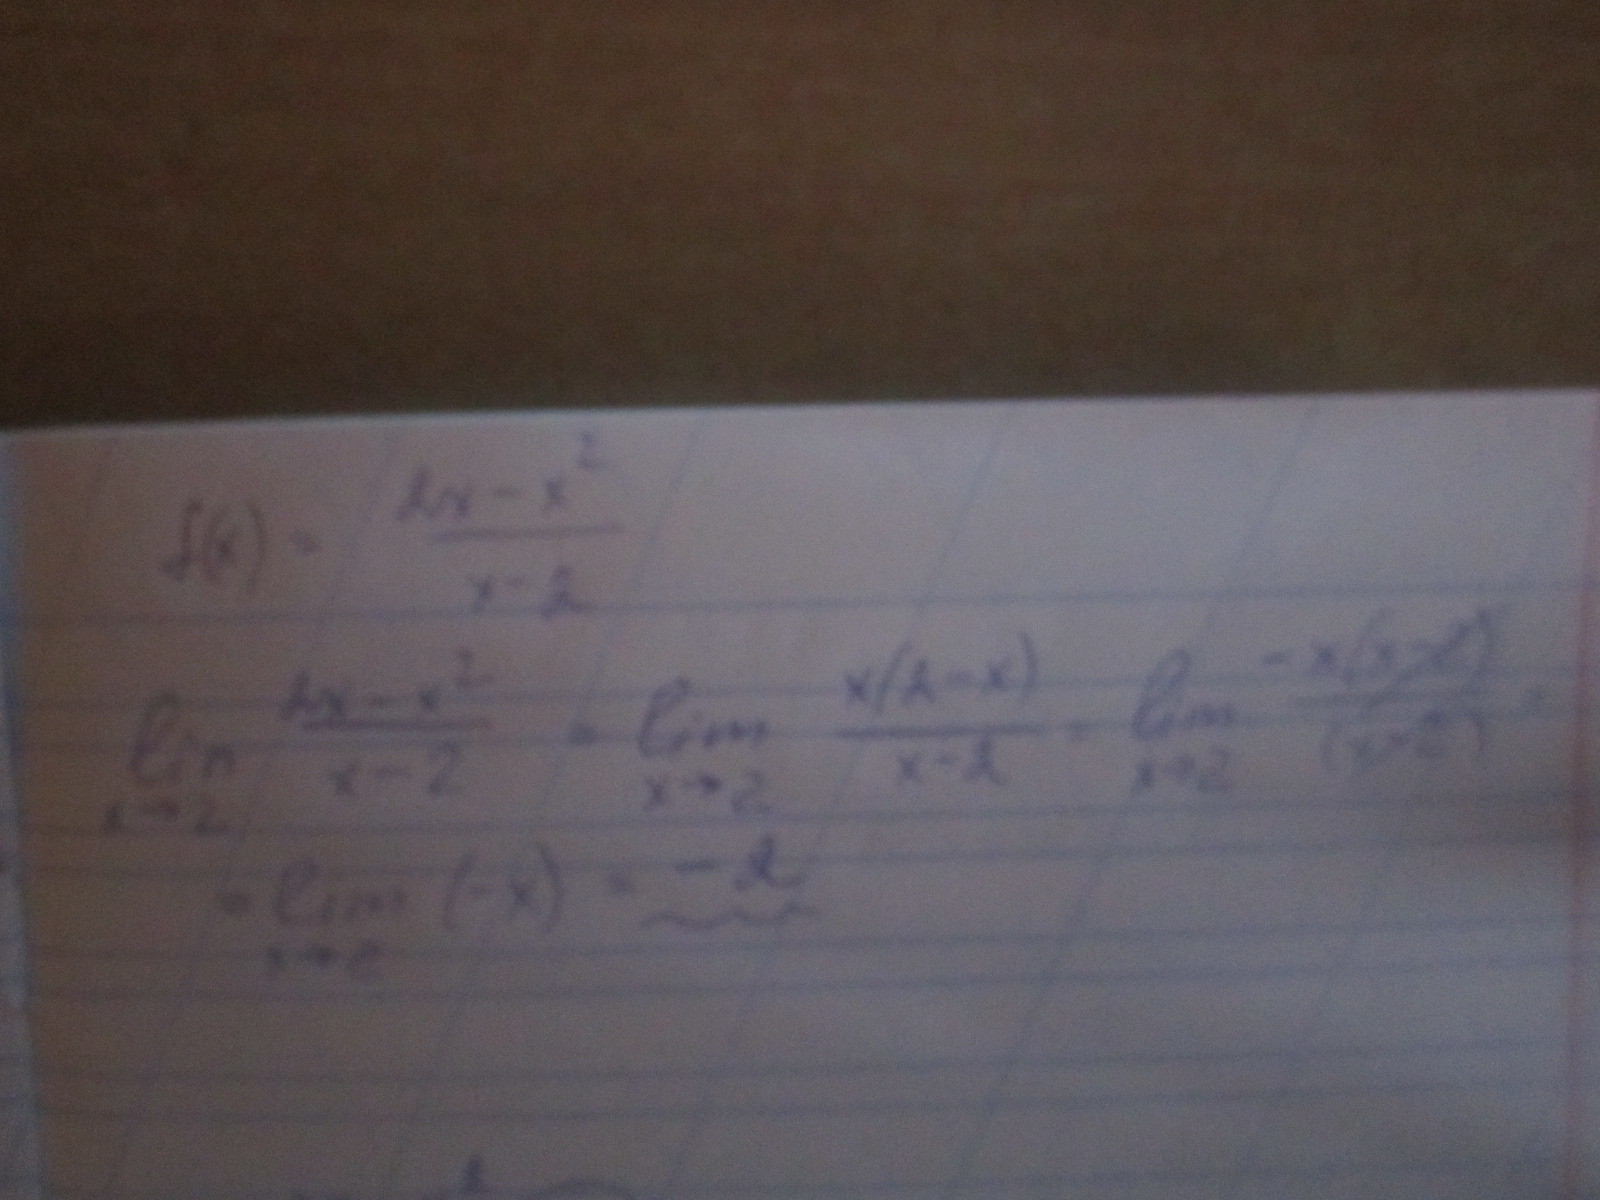 f(x) = (2x - x²)/(x - 2)
lim x→2 (2x - x²)/(x - 2) = lim x→2 x(2 - x)/(x - 2) = lim x→2 -x(x-2)/(x-2) =
= lim x→2 (-x) = -2